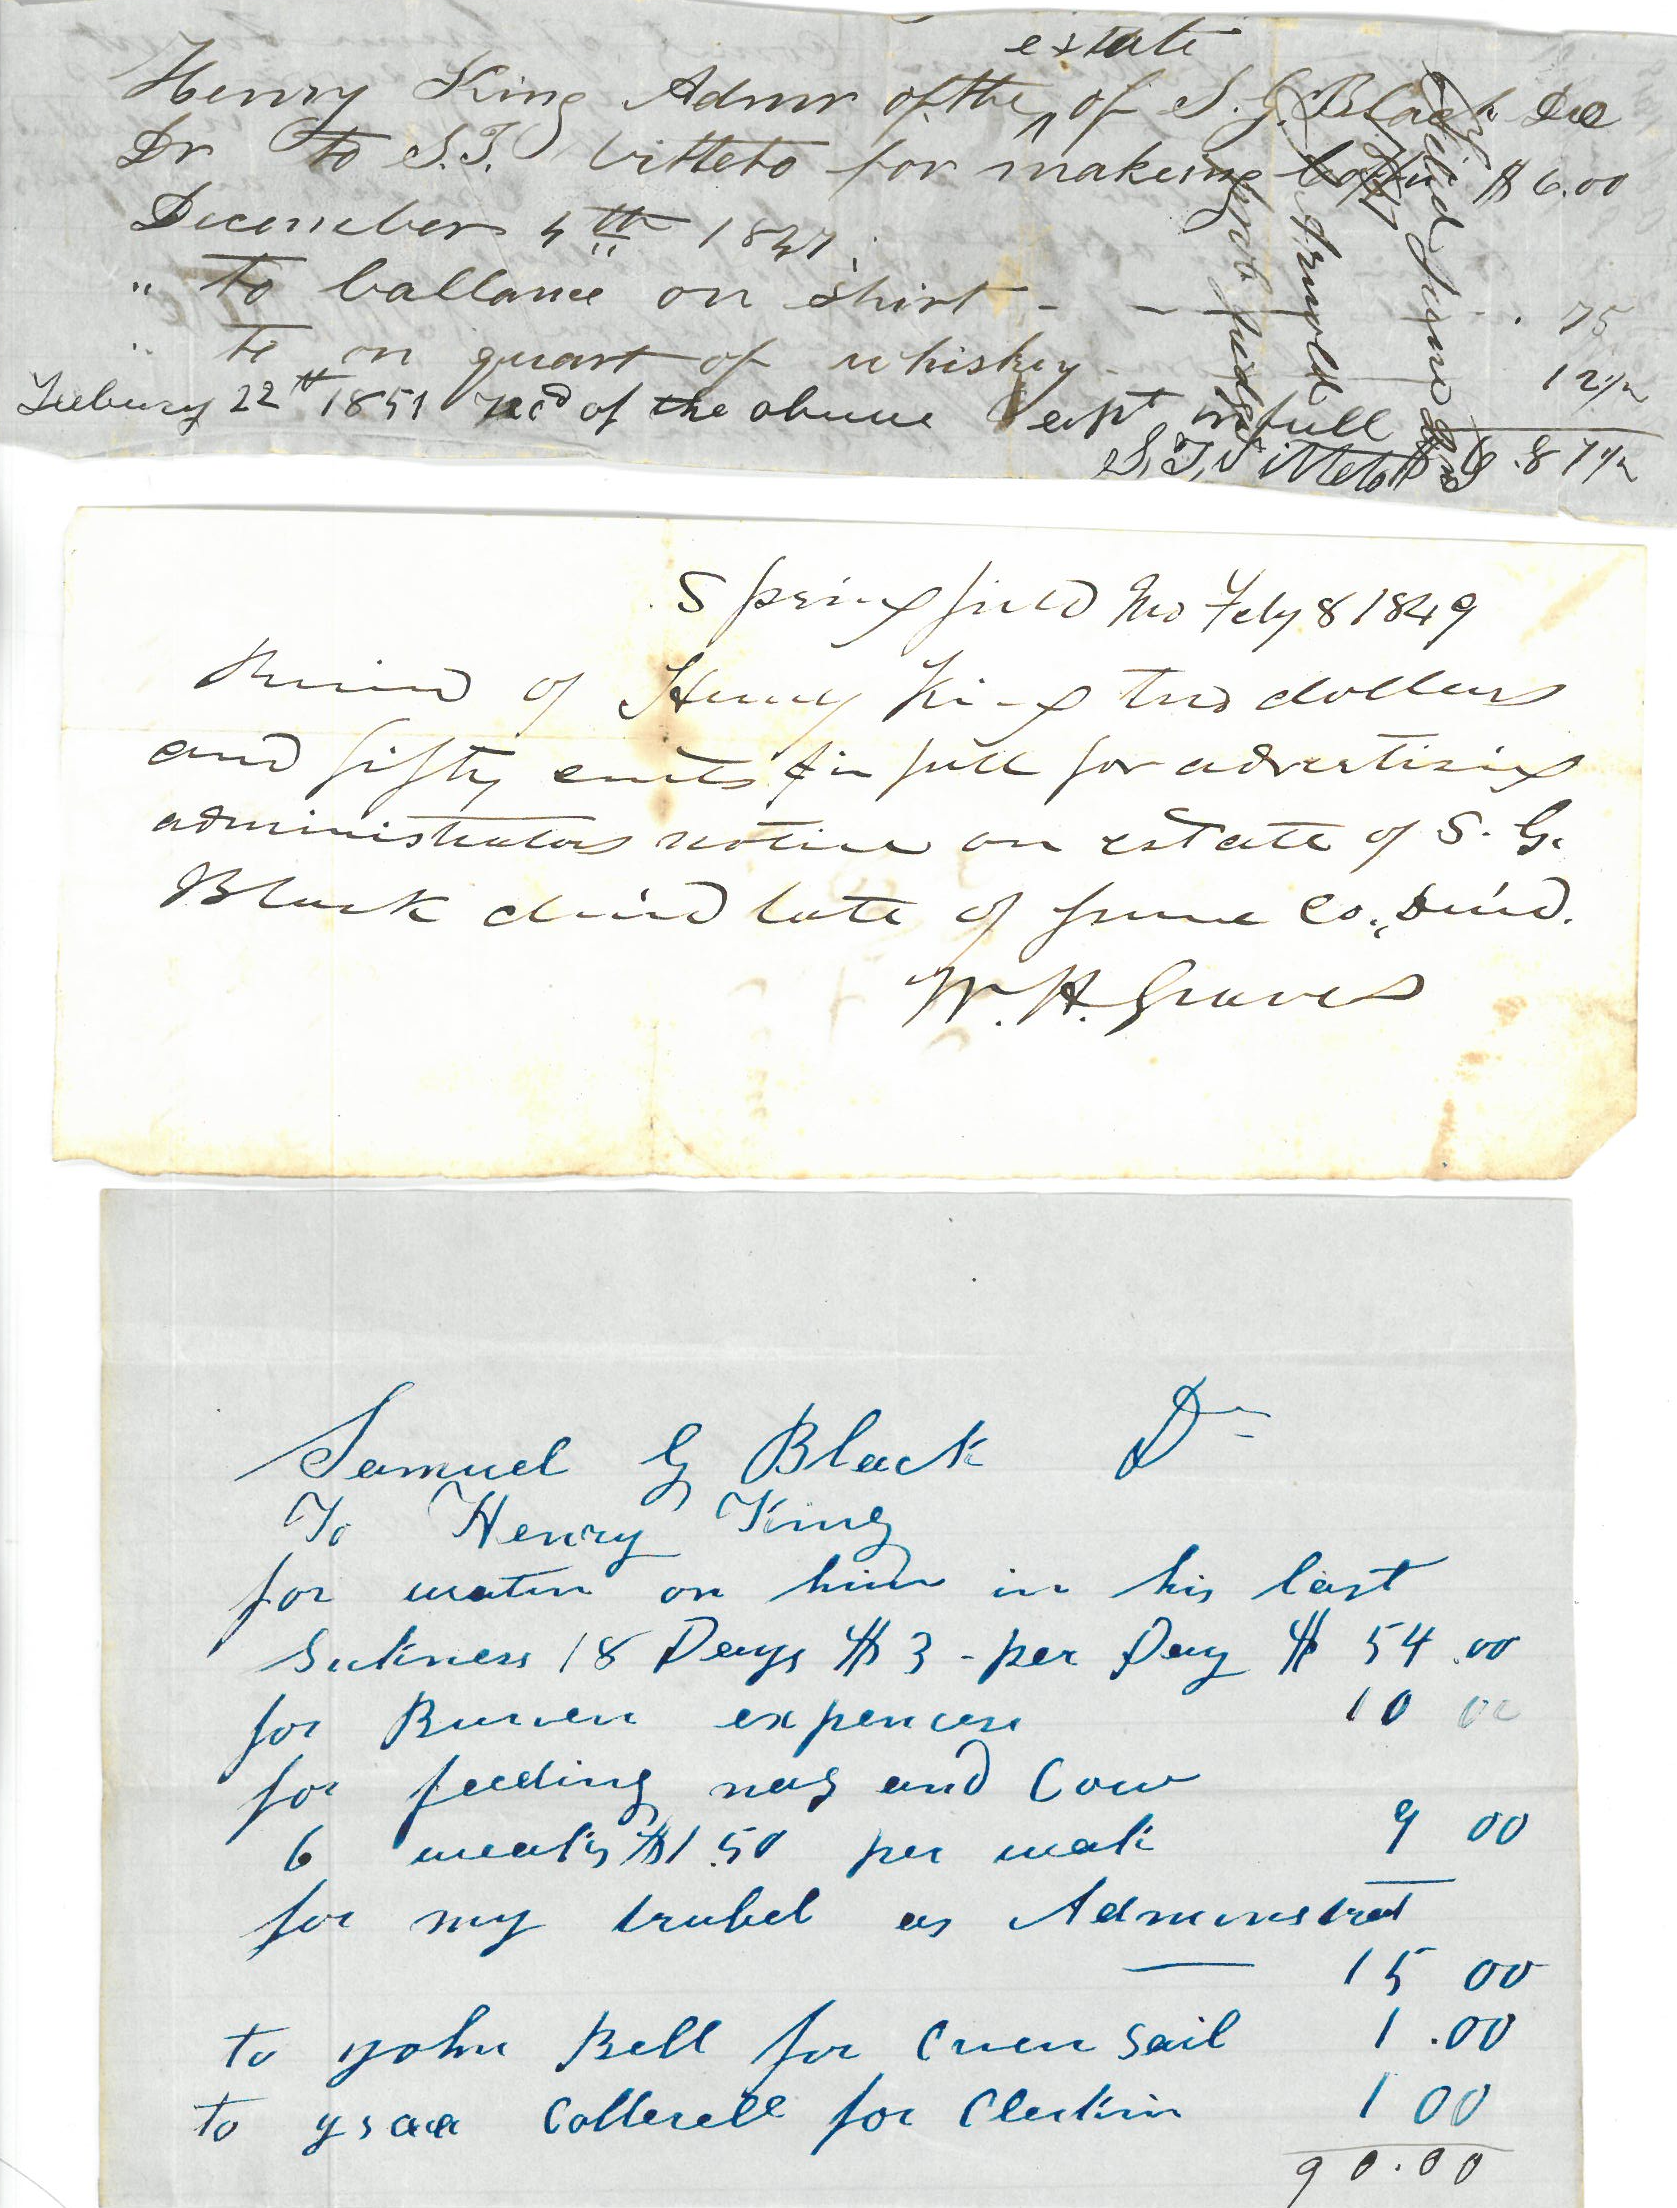 estate
Henry King Admr of the ^ of S. G. Black Dec
Dr to S.T. Vitteto for making Coffin $ 6.00
December 4th 1847
" to ballance on shirt - - - . 75
" to on quart of whiskey - 12 1/2
Feebury 22th 1851 Recd of the above acpt in full $6.87 1/2
S.T. Vitteto
filed June
Arnold
Prob Judge
Springfield Mo Feby 8 1849
Received of Henry King two dollars
and fifty cents in full for advertising
administrators notice on estate of S. G.
Black deceid late of Greene Co., deceid.
W. H. Graves
Samuel G Black Dr
To Henry King
for waten on him in his last
Sickness 18 Days $ 3 - per Day $ 54.00
for Burien expencess 10 00
for feeding nag and Cow
6 weaks $1.50 per weak 9 00
for my trubel as Adminstrat
15 00
to yohn Bell for Crien Sail 1.00
to ysaa Cotterell for Clerkin 1 00
90.00